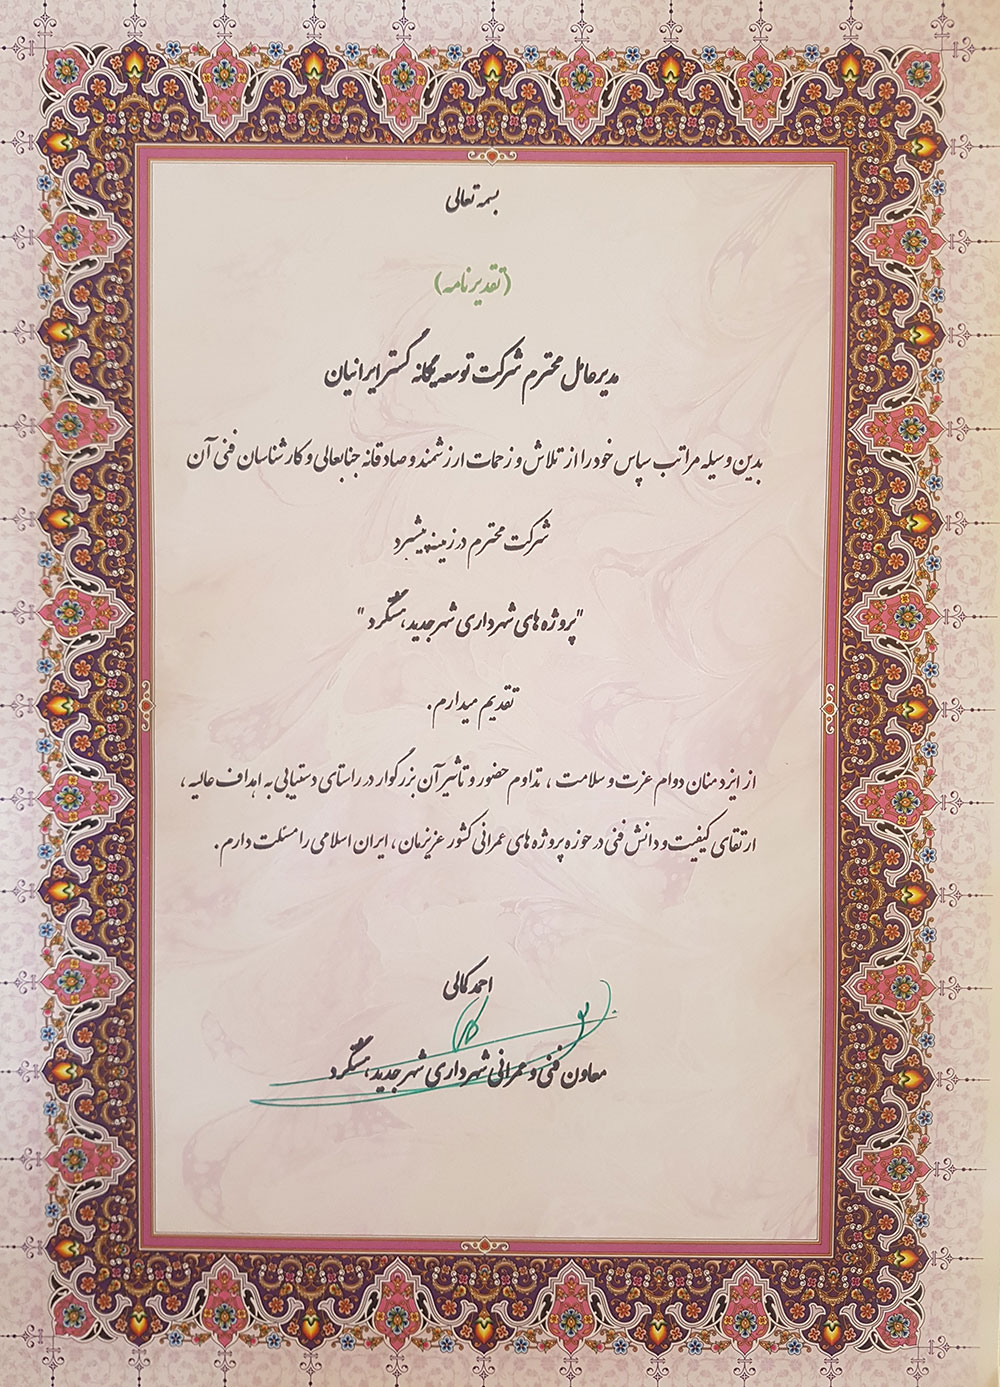 بسمه تعالی
(تقدیرنامه)
مدیرعامل محترم شرکت توسعه یگانه گستر ایرانیان
بدین وسیله مراتب سپاس خود را از تلاش و زحمات ارزشمند و صادقانه جنابعالی و کارشناسان فنی آن
شرکت محترم در زمینه پیشبرد
"پروژه های شهرداری شهر جدید هشتگرد"
تقدیم میدارم.
از ایزد منان دوام عزت و سلامت ، تداوم حضور و تاثیر آن بزرگوار در راستای دستیابی به اهداف عالیه ،
ارتقای کیفیت و دانش فنی در حوزه پروژه های عمرانی کشور عزیزمان ، ایران اسلامی را مسئلت دارم.
احمد کمالی
معاون فنی و عمرانی شهرداری شهر جدید هشتگرد